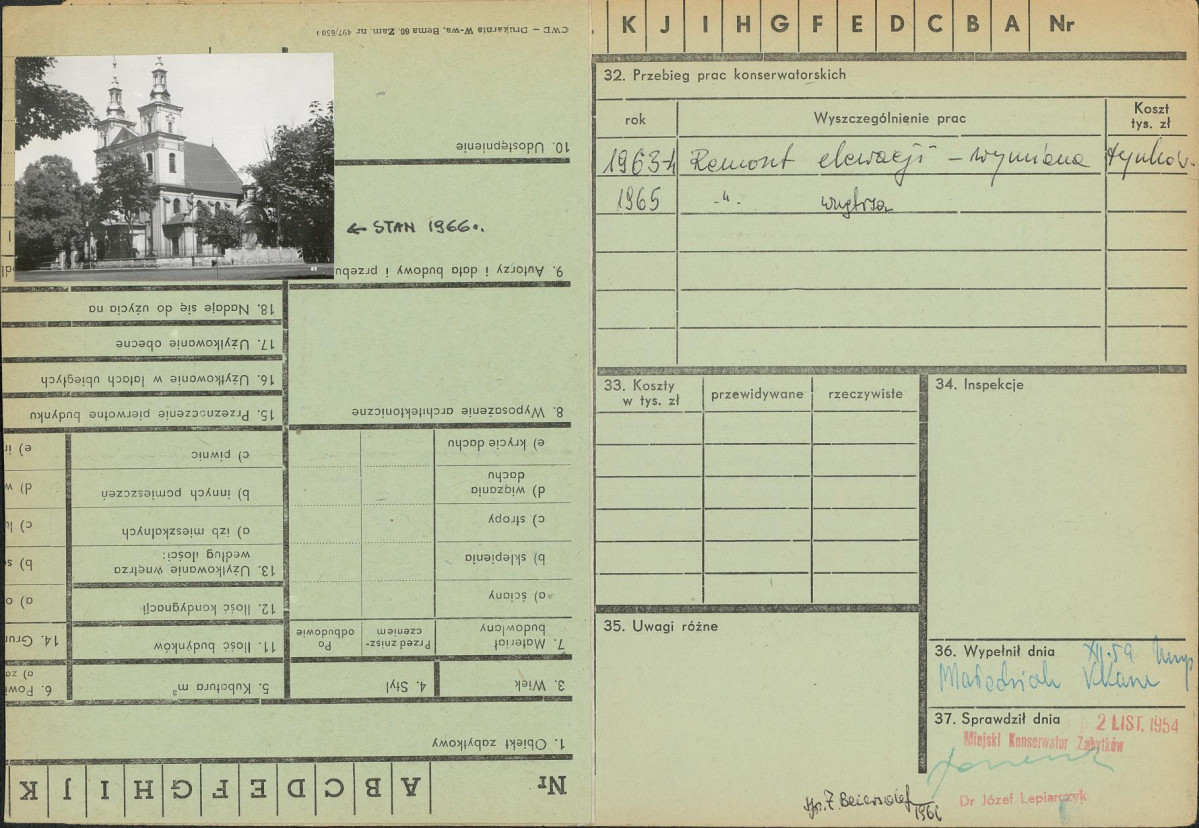 K J I H G F E D C B A Nr
32. Przebieg prac konserwatorskich
rok
Wyszczególnienie prac
Koszt
tys. zł
1963-4 Remont elewacji - wymiana tynków.
1965 -"- wnętrza
33. Koszty
w tys. zł
przewidywane
rzeczywiste
34. Inspekcje
35. Uwagi różne
36. Wypełnił dnia XII.59
37. Sprawdził dnia 2 LIST. 1954
Miejski Konserwator Zabytków
Dr Józef Lepiarczyk
1966
← STAN 1966.
CWD — Drukarnia W-wa, Bema 60. Zam. nr 497/650
10. Udostępnienie
9. Autorzy i data budowy i przebu
18. Nadaje się do użycia na
17. Użytkowanie obecne
16. Użytkowanie w latach ubiegłych
15. Przeznaczenie pierwotne budynku
8. Wyposażenie architektoniczne
e) krycie dachu
d) wiązania
dachu
c) stropy
b) sklepienia
a) ściany
7. Materiał
budowlany
Przed znisz-
czeniem
Po
odbudowie
c) piwnic
b) innych pomieszczeń
a) izb mieszkalnych
13. Użytkowanie wnętrza
według ilości:
12. Ilość kondygnacji
11. Ilość budynków
14. Grun
3. Wiek
4. Styl
5. Kubatura m³
6. Powi
1. Obiekt zabytkowy
Nr A B C D E F G H I J K